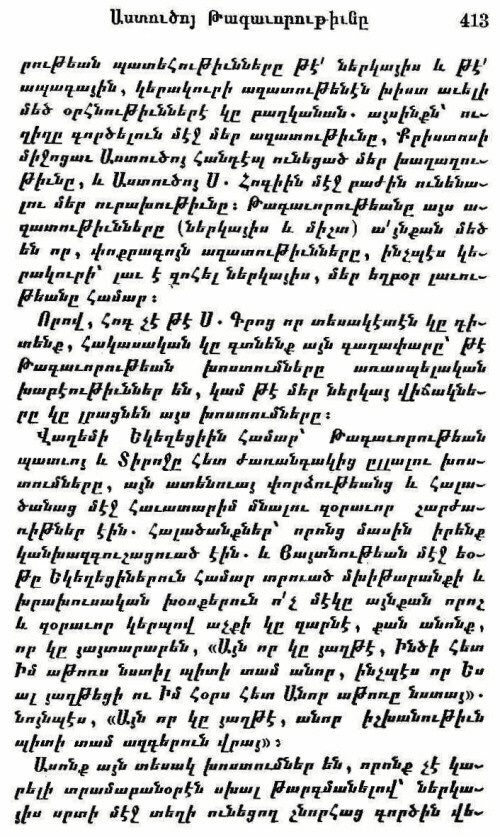 Աստուծոյ Թագաւորութիւնը 413
րութեան պատեհութիւնները թէ՛ ներկայիս և թէ՛
ապագային, կերակուրի ազատութենէն խիստ աւելի
մեծ օրհնութիւններէ կը բաղկանան. այսինքն՝ ու-
ղիղը գործելուն մէջ մեր ազատութիւնը, Քրիստոսի
միջոցաւ Աստուծոյ հանդէպ ունեցած մեր խաղաղու-
թիւնը, և Աստուծոյ Ս. Հոգիին մէջ բաժին ունենա-
լու մեր ուրախութիւնը։ Թագաւորութեանը այս ա-
զատութիւնները (ներկայիս և միշտ) ա՛յնքան մեծ
են որ, փոքրագոյն ազատութիւնները, ինչպէս կե-
րակուրի՝ լաւ է զոհել ներկայիս, մեր եղբօր լաւու-
թեանը համար։
Որով, հոգ չէ թէ Ս. Գրոց որ տեսակէտէն կը դի-
տենք, հակասական կը գտնենք այն գաղափարը՝ թէ
Թագաւորութեան խոստումները առասպելական
խաբէութիւններ են, կամ թէ մեր ներկայ վիճակնե-
րը կը լրացնեն այս խոստումները։
Վաղեմի Եկեղեցիին համար՝ Թագաւորութեան
պատւոյ և Տիրոջը հետ ժառանգակից ըլլալու խոս-
տումները, այն ատենուայ փորձութեանց և հալա-
ծանաց մէջ հաւատարիմ մնալու զօրաւոր շարժա-
ռիթներ էին. հալածանքներ՝ որոնց մասին իրենք
կանխազգուշացուած էին. և Յայտնութեան մէջ եօ-
թը Եկեղեցիներուն համար տրուած մխիթարանքի և
խրախուսական խօսքերուն ո՛չ մէկը այնքան որոշ
և զօրաւոր կերպով աչքի կը զարնէ, քան անոնք,
որ կը յայտարարեն, «Այն որ կը յաղթէ, Ինծի հետ
Իմ աթոռս նստիլ պիտի տամ անոր, ինչպէս որ Ես
ալ յաղթեցի ու Իմ Հօրս հետ Անոր աթոռը նստայ».
նոյնպէս, «Այն որ կը յաղթէ, անոր իշխանութիւն
պիտի տամ ազգերուն վրայ»։
Ասոնք այն տեսակ խոստումներ են, որոնք չէ կա-
րելի տրամաբանօրէն սխալ թարգմանելով՝ ներկա-
յիս սրտի մէջ տեղի ունեցող շնորհաց գործին վե-